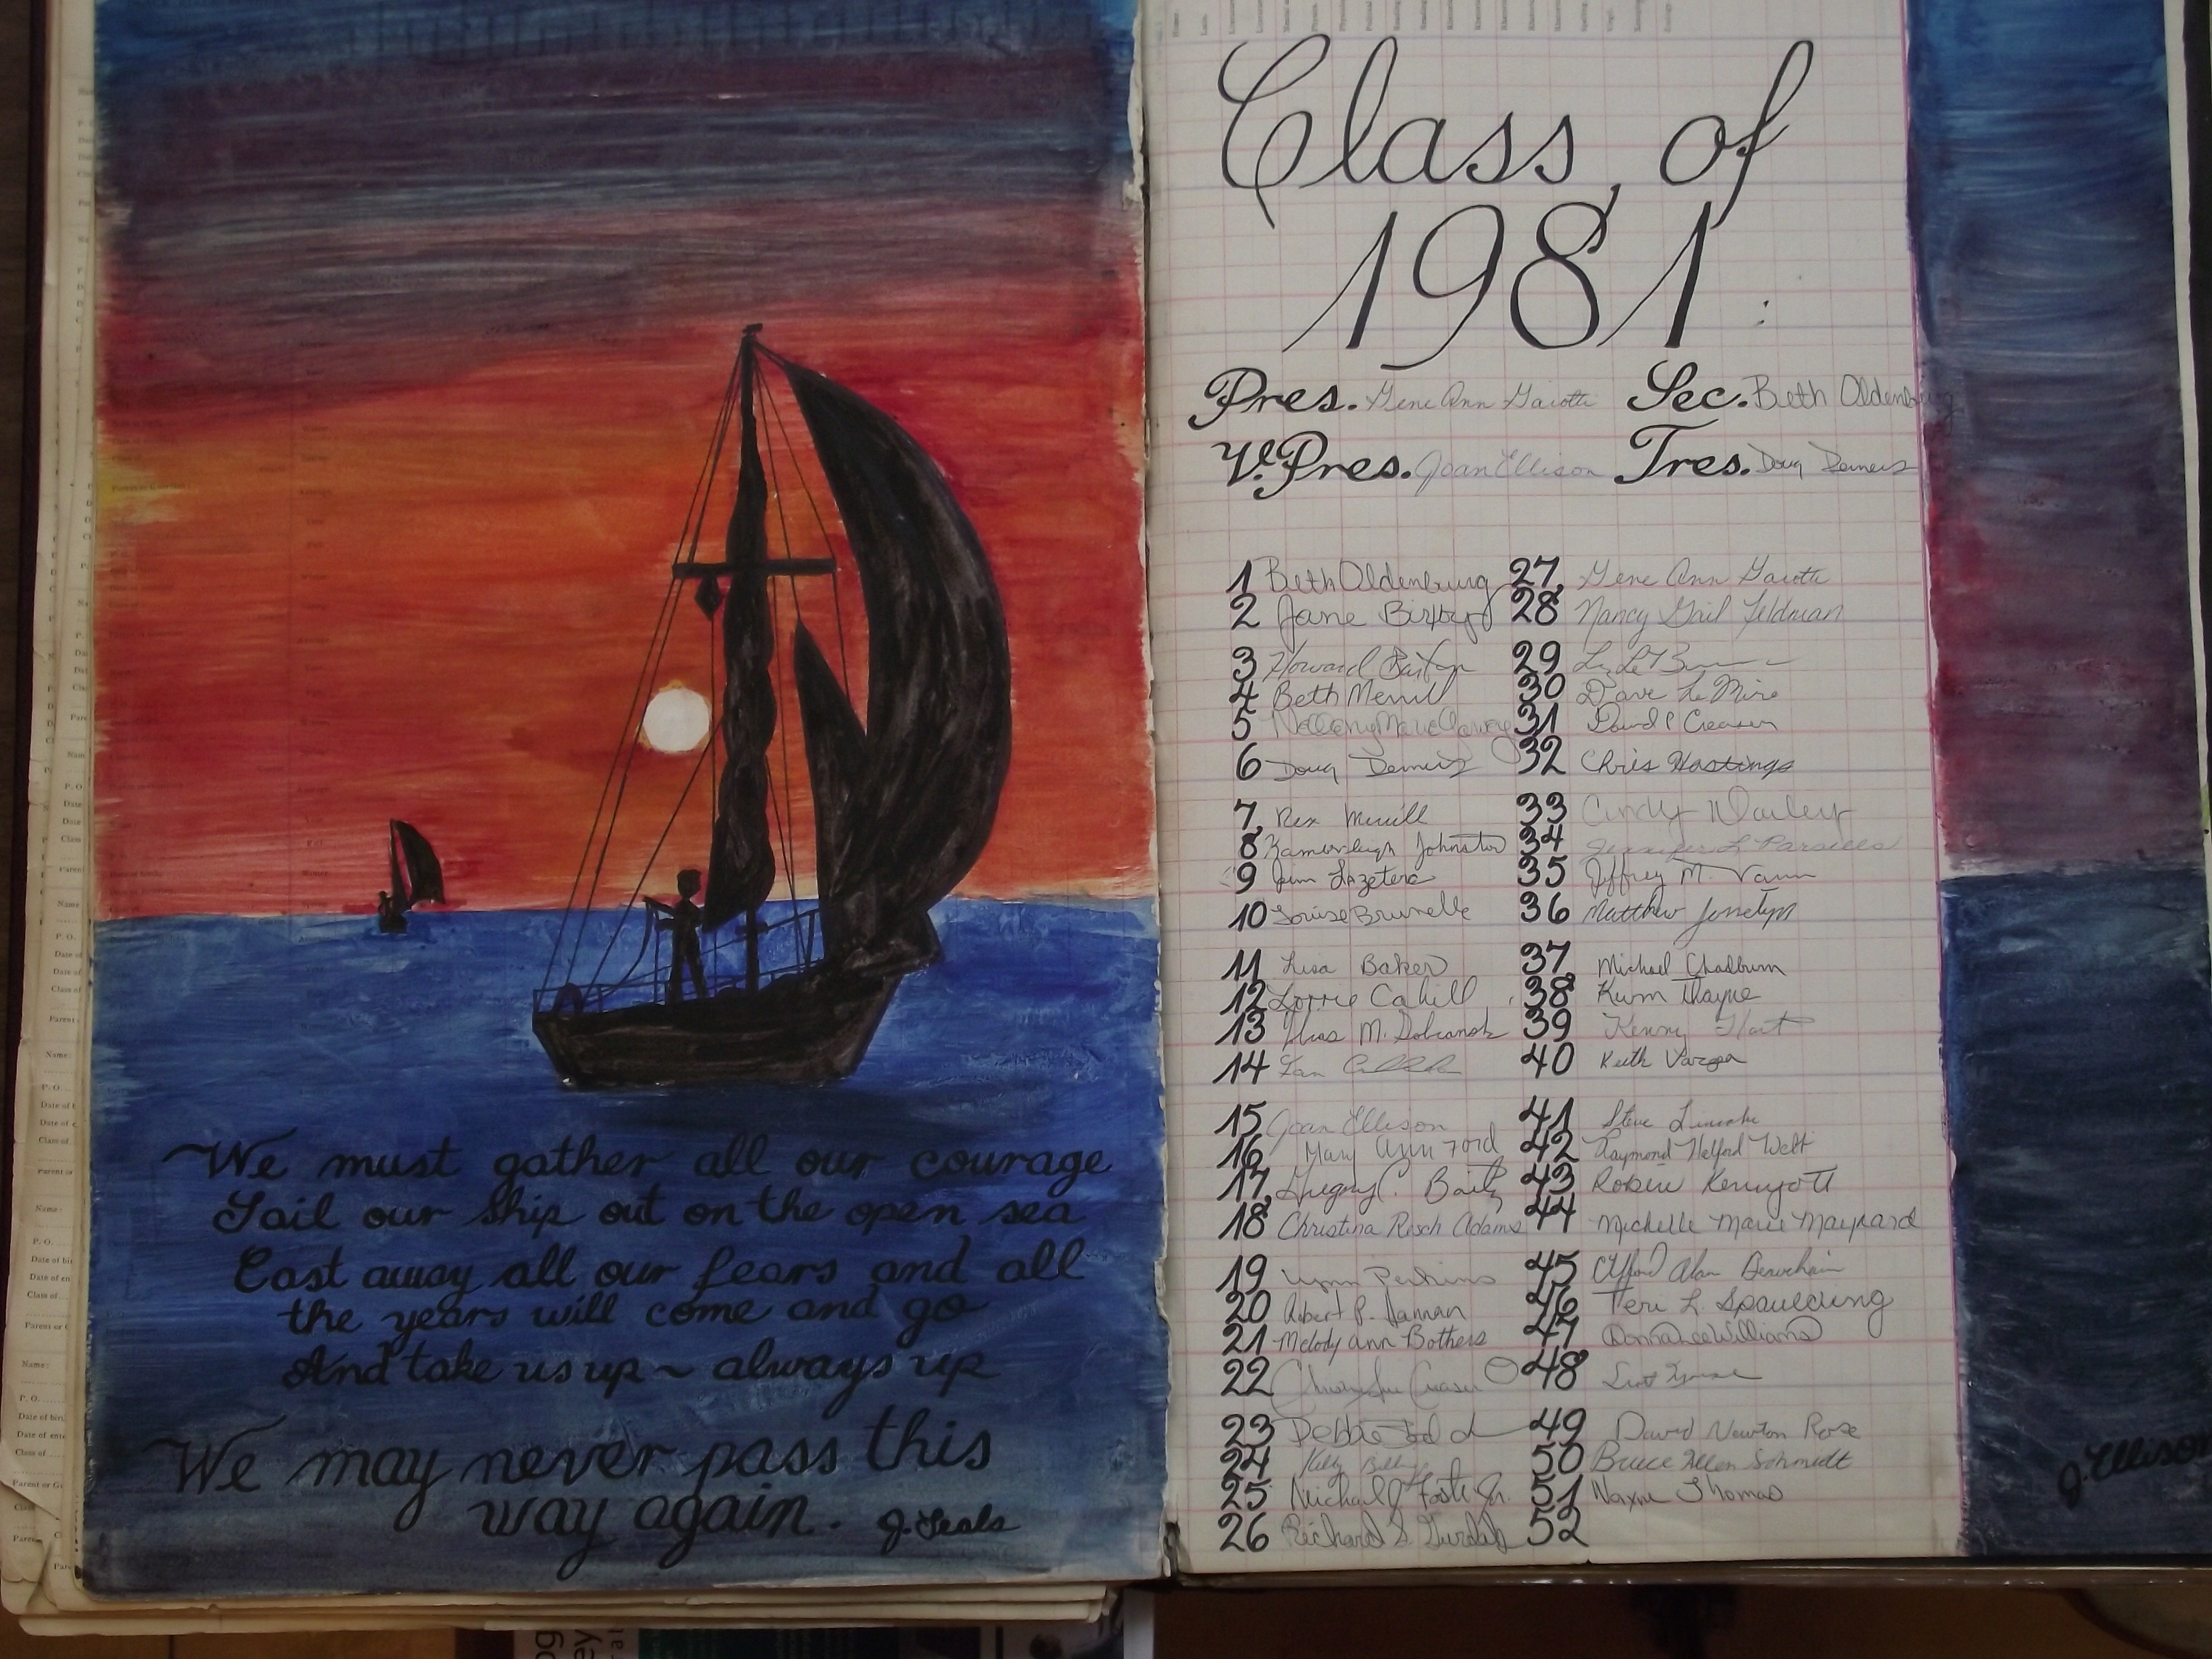 We must gather all our courage
Sail our ship out on the open sea
Cast away all our fears and all
the years will come and go
And take us up ~ always up
We may never pass this
way again. J. Seals
Class of
1981:
Pres. Gene Ann Gaiotti Sec. Beth Oldenburg
V. Pres. Joan Ellison Tres. Doug Demers
1 Beth Oldenburg
2 Jane Bixby
3 Howard
4 Beth Merrill
5
6 Doug Demers
7 Rex Merrill
8 Johnston
9
10 Louise Brunelle
11 Lisa Baker
12 Lorrie Cahill
13 M.
14 Ian
15 Joan Ellison
16 Mary Ann Ford
17 Gregory C.
18 Christina Rosch Adams
19 Lynn Perkins
20 Robert P. Hannan
21 Melody Ann Bothers
22
23 Debbie
24 Kelly
25 Michael J Foster Jr.
26 Richard S.
27 Gene Ann Gaiotti
28 Nancy Gail Feldman
29
30 Dave LeMire
31 David P Creaser
32 Chris Hastings
33 Cindy Dailey
34 Jennifer L Parsells
35 Jeffrey M. Vann
36 Matthew
37 Michael Chadburn
38 Kurm Thayne
39 Kenny Hart
40 Keith Varga
41 Steve Lincoln
42 Raymond Welt
43 Robin Kenyott
44 Michelle Marie Maynard
45 Clifford Alan Beauchain
46 Teri L. Spaulding
47 Donna Lee Williams
48
49 David Newton Rose
50 Bruce Allen Schmidt
51 Thomas
52
J. Ellison